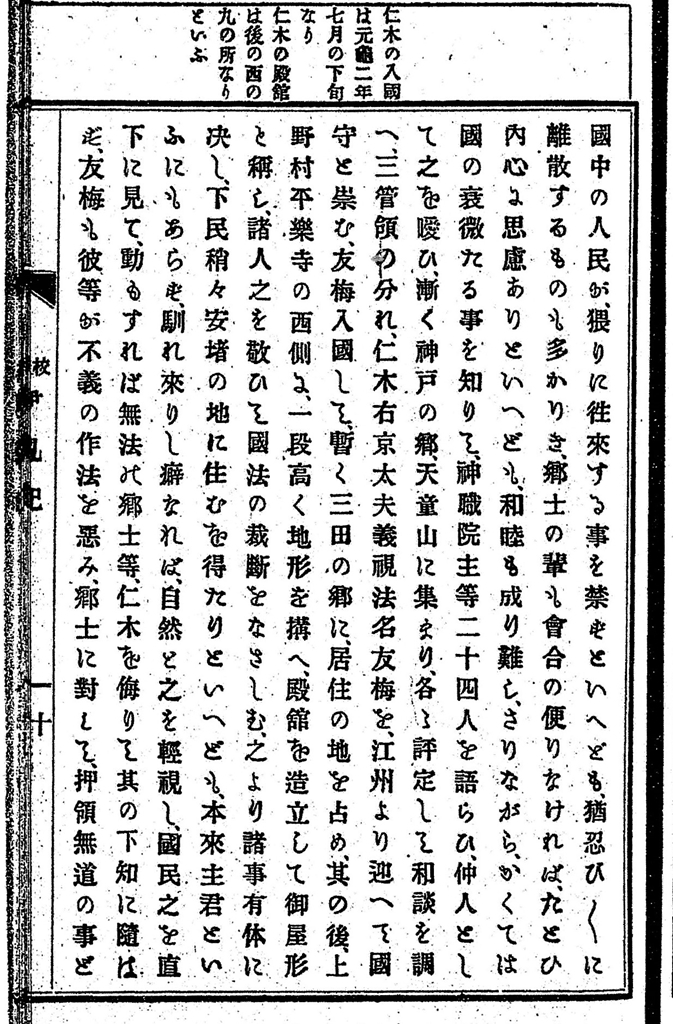 仁木の入國
は元龜二年
七月の下旬
なり
仁木の殿館
は後の西の
九の所なり
といふ
國中の人民が、猥りに往來する事を禁ぜといへども、猶忍び〳〵に
離散するものも多かりき、郷士の輩も會合の便りなければ、たとひ
內心は思慮ありといへども、和睦も成り難し、さりながら、かくては
國の衰微たる事を知りて、神職院主等二十四人を語らひ、仲人とし
て之を噯ひ、漸く神戸の郷、天童山に集まり、各〻評定して和談を調
へ、三管領の分れ、仁木右京太夫義視法名友梅を、江州より迎へて國
守と崇む、友梅入國して、暫く三田の郷に、居住の地を占め、其の後、上
野村平樂寺の西側は、一段高く地形を搆へ、殿館を造立して御屋形
と稱し、諸人之を敬ひて國法の裁斷をなさしむ、之より諸事有体に
决し、下民稍々安堵の地に住むを得たりといへども、本來主君とい
ふにもあらず、馴れ來りし癖なれば、自然と之を輕視し、國民之を直
下に見て、動もすれば無法の郷士等、仁木を侮りて其の下知に隨は
ず、友梅も彼等が不義の作法を惡み、郷士に對して、押領無道の事ど
校
伊亂記
一十